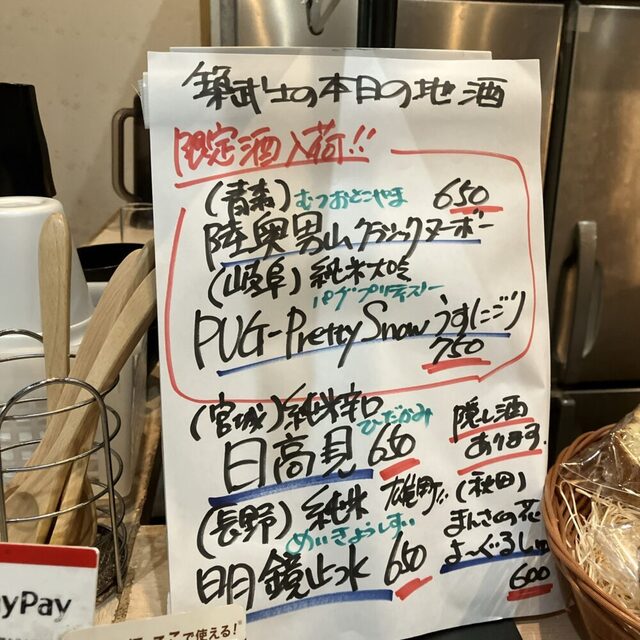 築武士の本日の地酒
限定酒入荷!!
(青森) むつおとこやま 650
陸奥男山クラシックヌーボー
(岐阜) 純米大吟
パグプリティスノー
PUG-Pretty Snow うすにごり
750
(宮城) 純米辛口
ひだかみ
日高見 650
(長野) 純米 雄町!!
めいきょうしすい
明鏡止水 650
隠し酒
あります。
(秋田)
まんさくの花
よ〜ぐるしゅ
600
yPay
ここで使える!